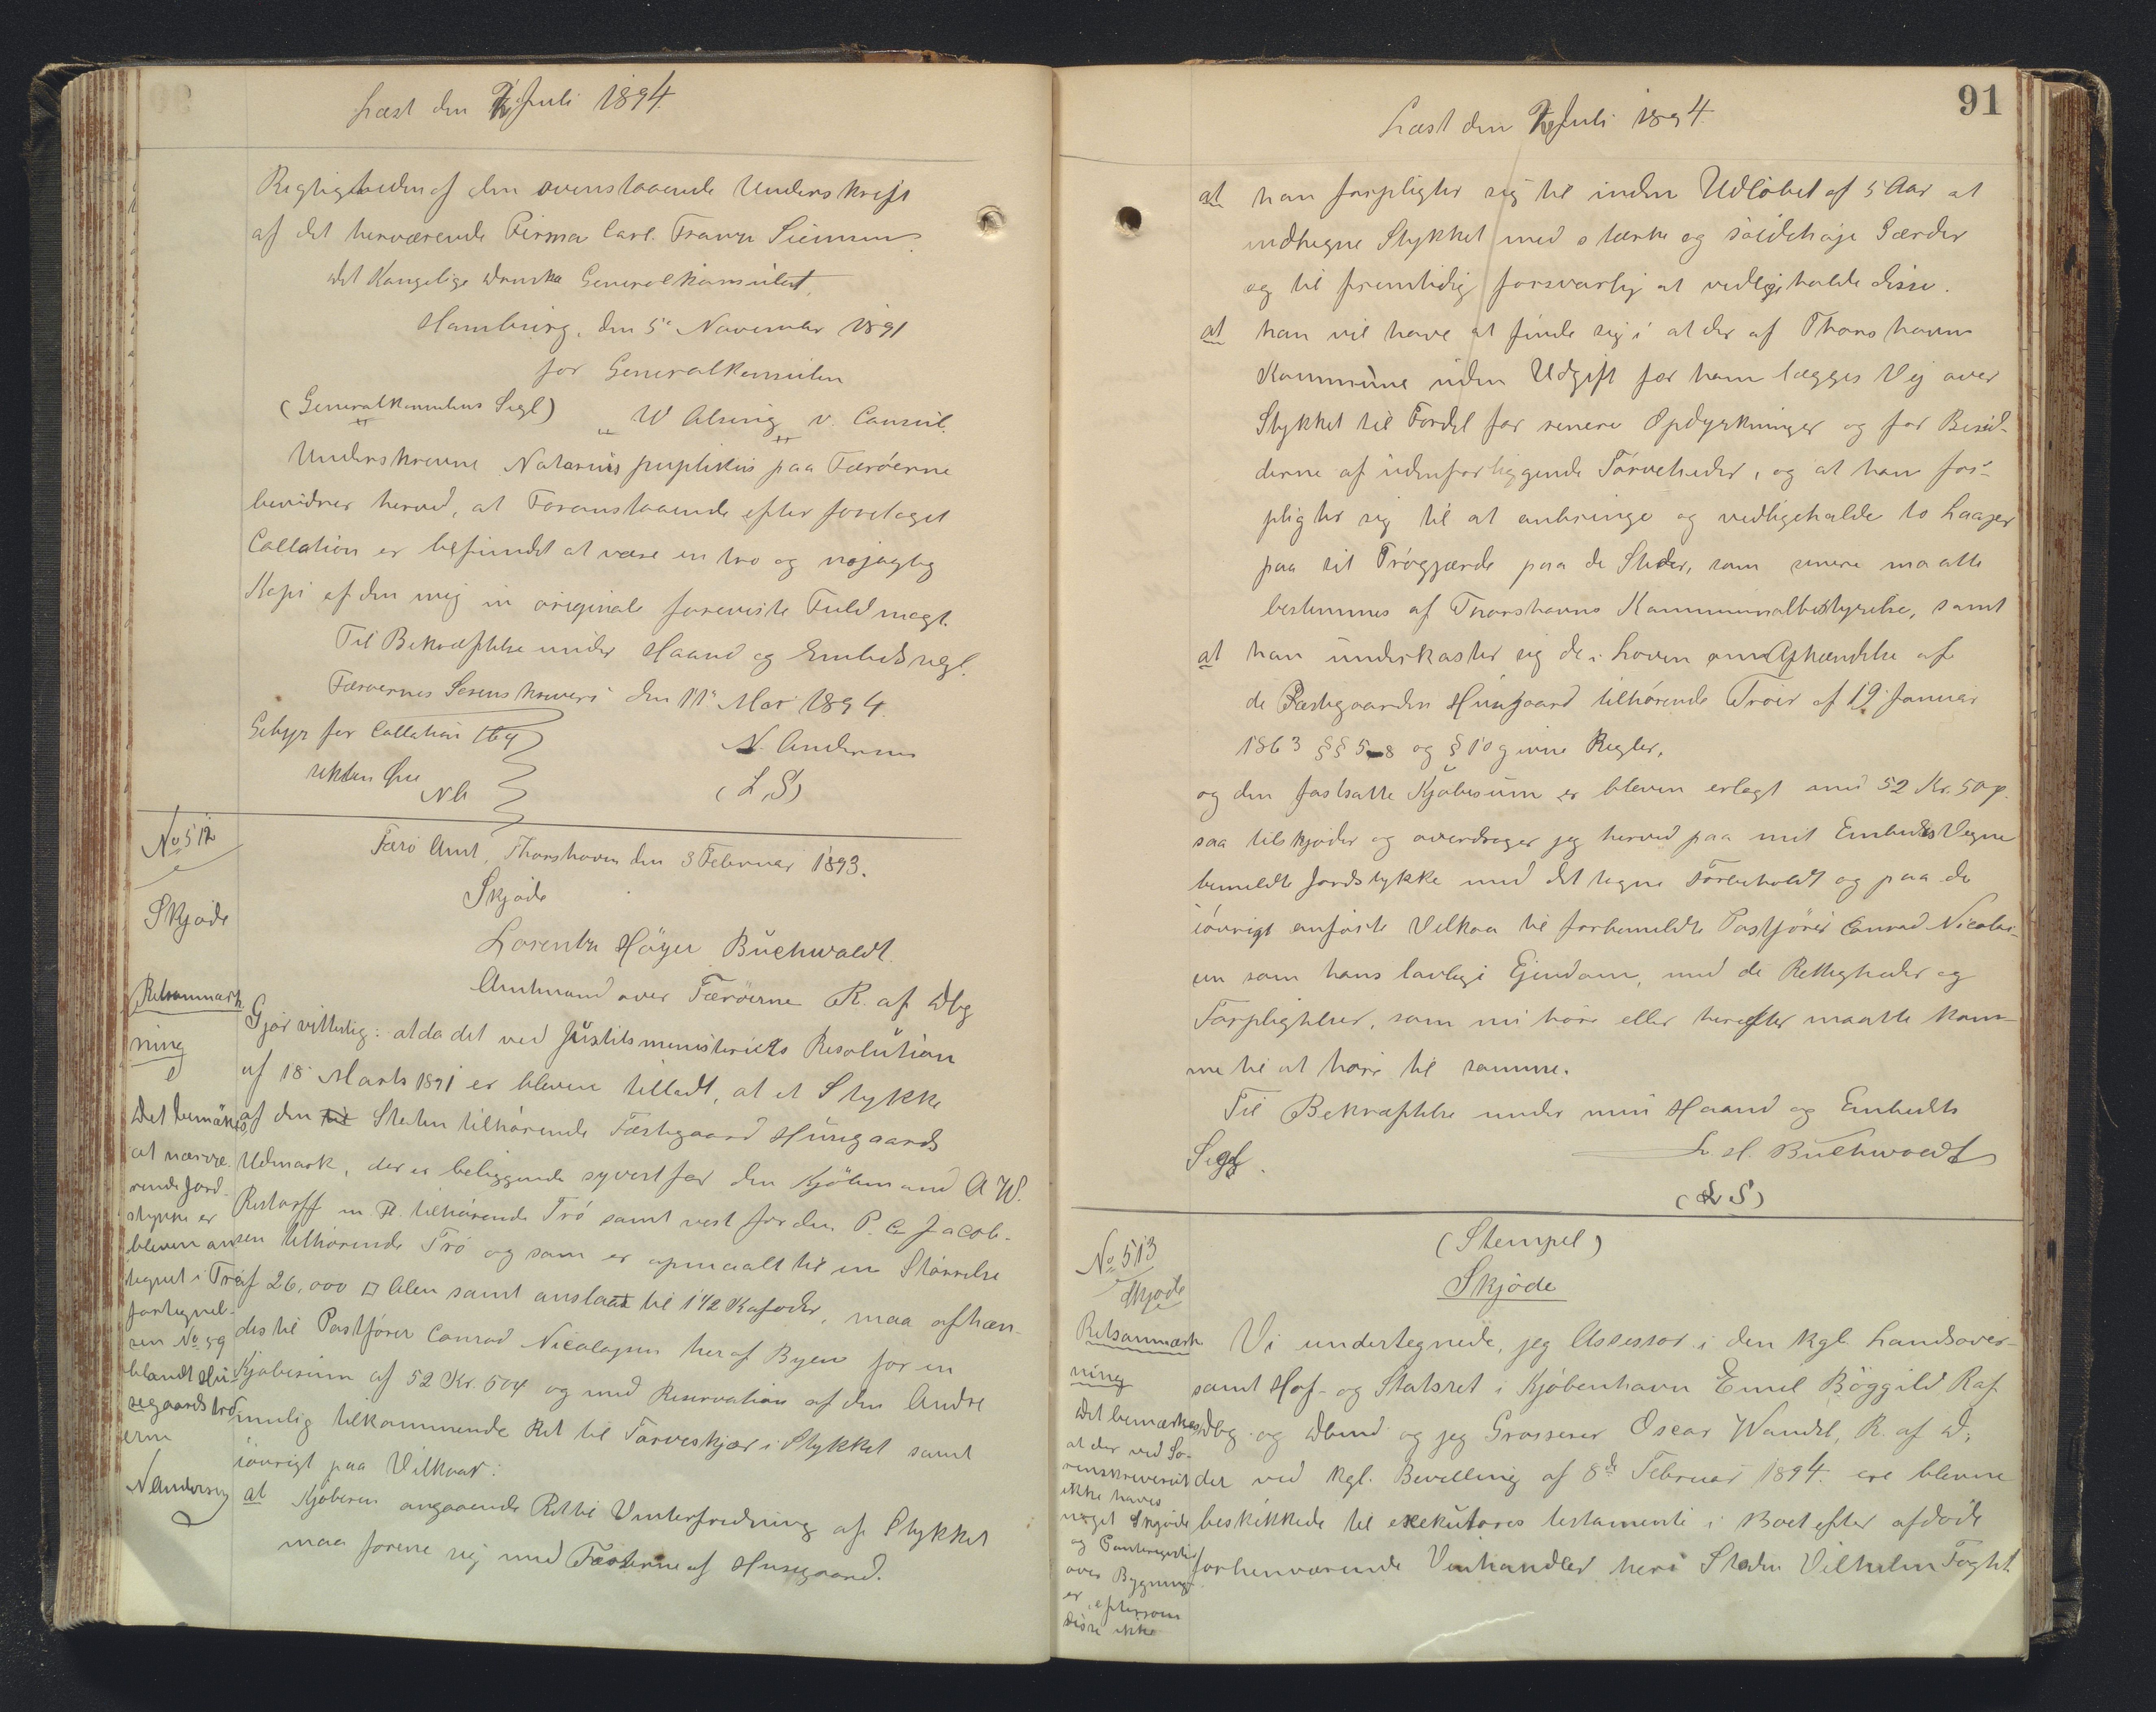 Læst den 7 Juli 1894.
Rigtigheden af den ovenstaaende Underskrift
af det herværende Firma Carl Franz Siemsen
det Kongelige danske Generalkonsulat,
Hamburg, den 5' November 1891
for Generalkonsulen
(Generalkonsulens Segl) W Alsing v. Consul.
Underskrevne Notarius puplikus paa Færöerne
bevidner herved, at Foranstaaende efter foretaget
Collation er befundet at være en tro og nøjagtig
Kopi af den mig in originale foreviste Fuldmagt.
Til Bekræftelse under Haand og Embedssegl.
Færøernes Sorenskriveri den 11' Mai 1894.
Gebyr for Collation 16 ø
seksten Øre
N. Andersen
NA
(L.S)
No 512
Skjøde
Retsanmærk
ning
Det bemærkes,
at nærvæ-
rende Jord-
stykke er
bleven an-
tegnet i Trø-
fortegnel-
sen No 59
blandt Hu-
segaards trø
erne
NAndersen
Færø Amt, Thorshavn den 3 Februar 1893.
Skjøde
Lorentz Höyer Buchwaldt.
Amtmand over Færöerne R. af Dbg
Gjør vitterlig: at da det ved Justitsministeriets Resolution
af 18' Marts 1891 er bleven tilladt, at et Stykke
af den til Staten tilhørende Fæstegaard Husegaards
Udmark, der er beliggende syvest for den Kjøbmand A W.
Restorff m. Fl. tilhørende Trö samt vest for den P. C Jacob-
sen tilhørende Trö og som er opmaalt til en Størrelse
af 26,000 □ Alen samt anslaaet til 1 1/2 Kofoder, maa afhæn-
des til Postfører Conrad Nicolajsen her af Byen for en
Kjøbesum af 52 Kr. 50 ø og med Reservation af den Andre
mulig tilkommende Ret til Tørveskjær i Stykket samt
iøvrigt paa Vilkaar:
at Kjøberen angaaende Ret til Vinterfredning af Stykket
maa forene sig med Fæsterne af Husegaard.
91
Læst den 7 Juli 1894.
at han forpligter sig til inden Udløbet af 5 Aar at
indhegne Stykket med stærke og sædehøje Gærder
og til fremtidig forsvarlig at vedligeholde disse.
at han vil have at finde sig i at der af Thorshavns
Kommune uden Udgift for ham lægges Vej over
Stykket til Fordel for senere Opdyrkninger og for Besid-
derne af udenforliggende Tørveheder, og at han for-
pligter sig til at anbringe og vedligeholde to Laager
paa sit Trøgjærde paa de Steder, som senere maatte
bestemmes af Thorshavns Kommunalbestyrelse, samt
at han underkaster sig de i Loven om Afhændelse af
de Fæstegaarden Husegaard tilhørende Trøer af 19' Januar
1863 §§ 5-8 og § 10 givne Regler,
og den fastsatte Kjøbesum er bleven erlagt med 52 Kr. 50 ø.
saa tilskjøder og overdrager jeg herved paa mit Embeds Vegne
bemeldte Jordstykke med det tagne Forbehold og paa de
iøvrigt anførte Vilkaar til forbemeldte Postfører Conrad Nicolaj-
sen som hans lovlige Ejendom, med de Rettigheder og
Forpligtelser, som nu høre eller herefter maatte kom-
me til at høre til samme.
Til Bekræftelse under min Haand og Embedets
Segl.
L. H. Buchwaldt
(L S)
No 513
Skjøde
Retsanmærk
ning
Det bemærkes
at der ved So-
renskriveriet
ikke haves
noget Skjøde
og Panteregister
over Bygning-
er, eftersom
disse ikke
(Stempel)
Skjøde
Vi undertegnede, jeg Assessor i den kgl. Landsover-
samt Hof- og Statsret i Kjøbenhavn Emil Böggild R af
Dbg og Dbmd og jeg Grosserer Oscar Wandel, R. af D,
der ved kgl. Bevilling af 8de Februar 1894 ere blevne
beskikkede til exekutores testamenti i Boet efter afdøde
forhenværende Vinhandler her i Staden Vilhelm Foght